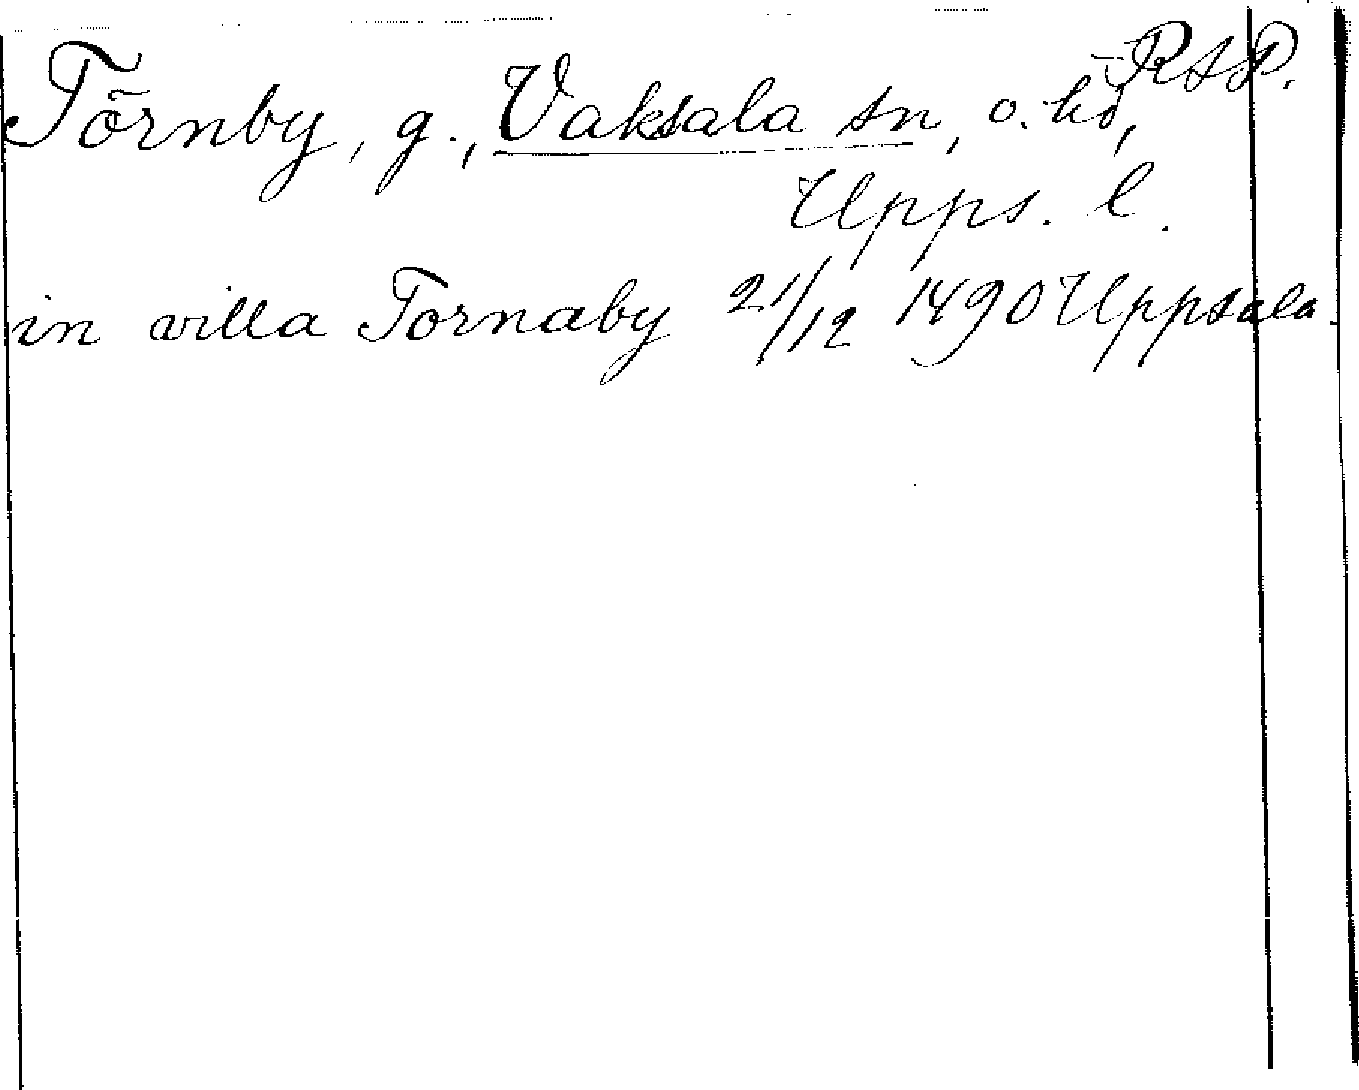 RAP.
Törnby, g., Vaksala sn, o. hd,
Upps. l.
in villa Tornaby 21/12 1490 Uppsala